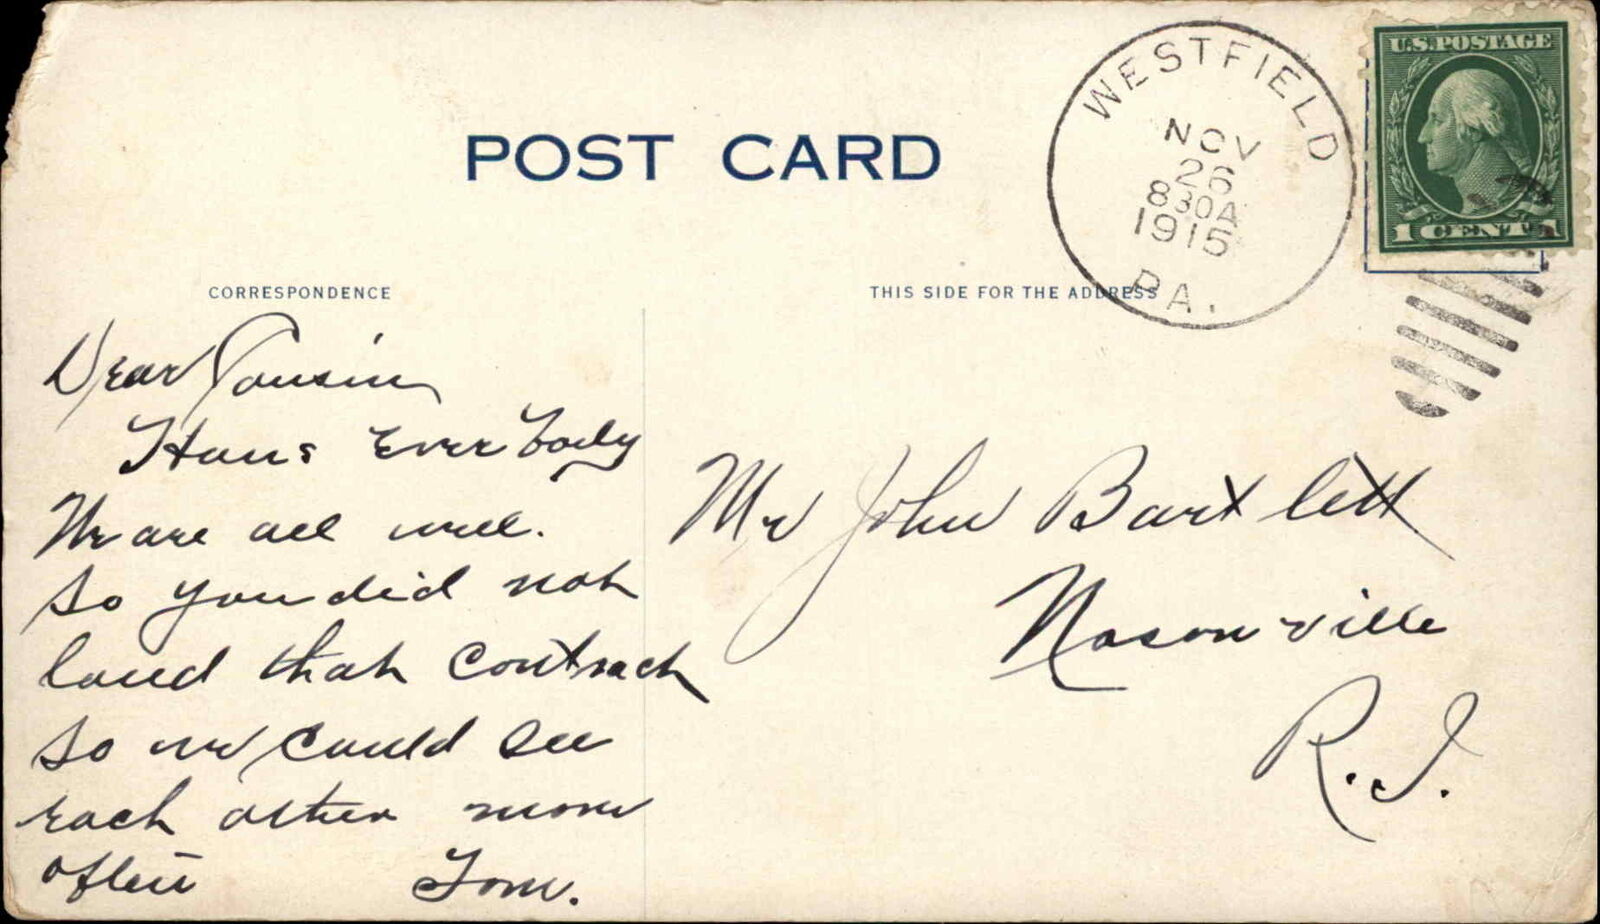 POST CARD
WESTFIELD
NOV
26
830A
1915
PA.
U.S. POSTAGE
1 CENT 1
CORRESPONDENCE
THIS SIDE FOR THE ADDRESS
Dear Cousin
Hows Everbody
We are all well.
So you did not
land that contract
so we could see
each other more
often Tom.
Mr John Bartlett
Nasonville
R.I.